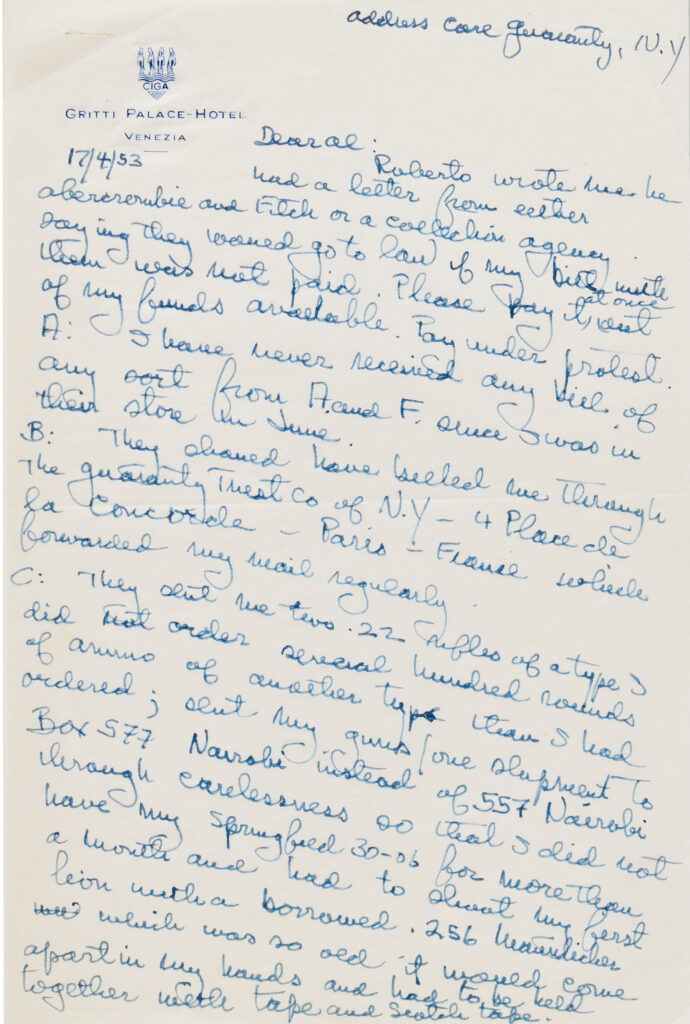 address care guaranty, N.Y
CIGA
GRITTI PALACE-HOTEL
VENEZIA
17/4/53
Dear al:
Roberto wrote me he
had a letter from either
abercrombie and Fitch or a collection agency
saying they would go to law if my bill with
them was not paid. Please pay it at once out
of my funds available. Pay under protest.
A: I have never received any bill of
any sort from A. and F. since I was in
their store in June.
B: They should have billed me through
The guaranty Trust Co of N.Y - 4 Place de
la Concorde - Paris - France which
forwarded my mail regularly.
C: They sent me two .22 rifles of a type I
did not order several hundred rounds
of ammo of another type than I had
ordered; sent my guns (one shipment to
Box 577 Nairobi instead of 557 Nairobi
through carelessness so that I did not
have my Springfield 30-06 for more than
a month and had to shoot my first
lion with a borrowed .256 Mannlicher
which was so old it would come
apart in my hands and had to be held
together with tape and scotch tape.